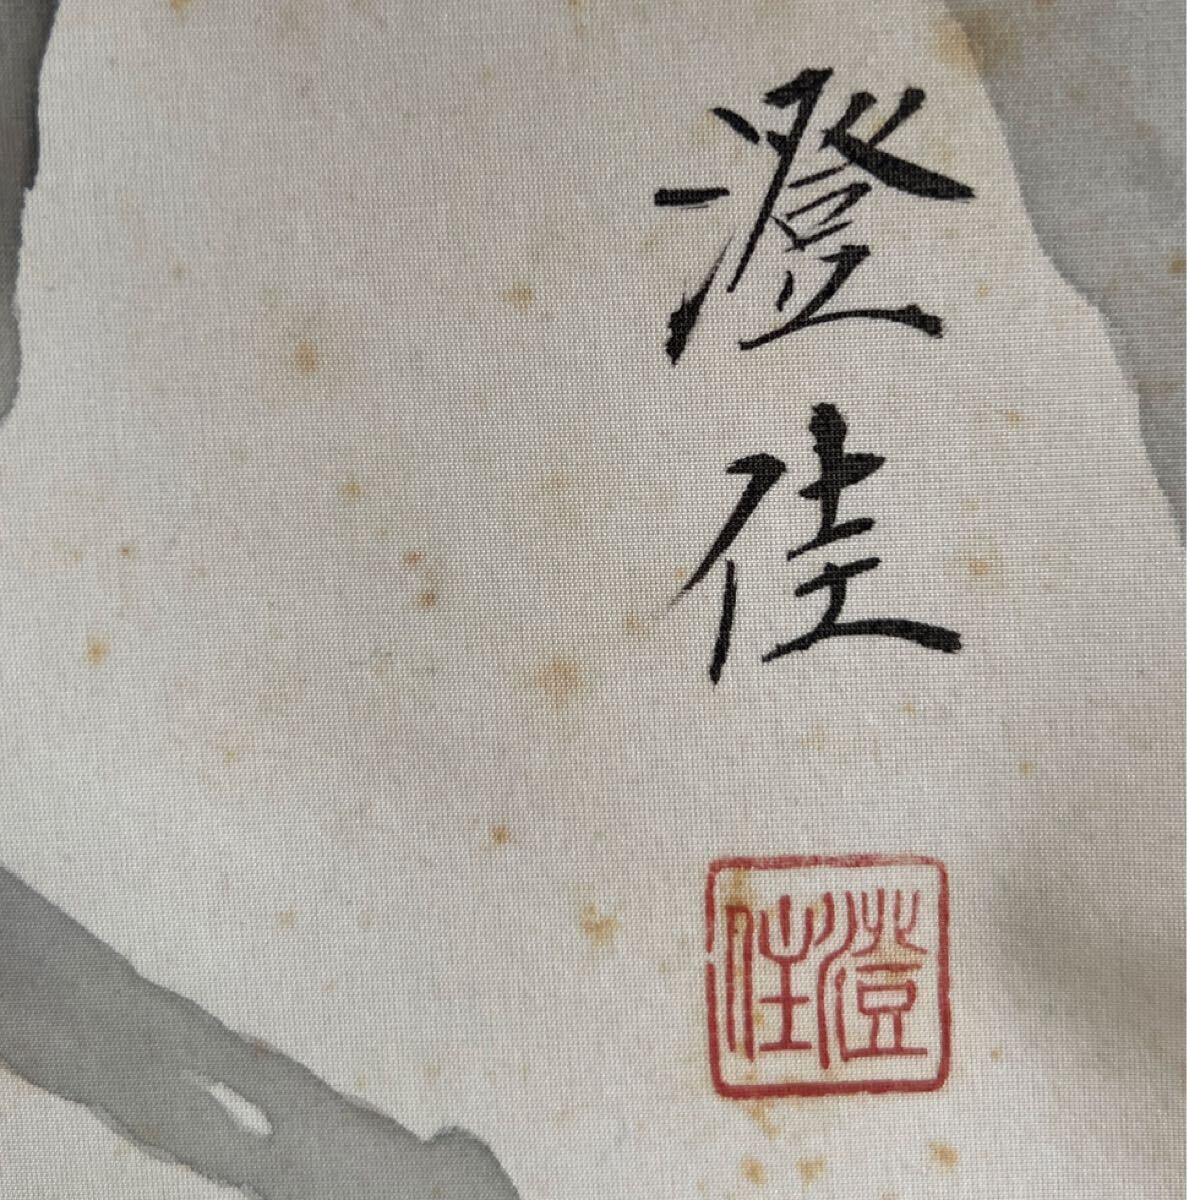 澄佳
澄佳